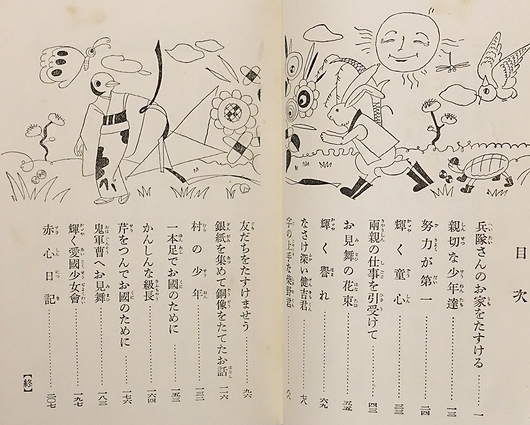 目次
兵隊さんのお家をたすける……………一
親切な少年達……………一三
努力が第一……………二四
輝く童心……………三三
兩親の仕事を引受けて……………四三
お見舞の花束……………五五
輝く譽れ……………六九
なさけ深い健吉君……………七八
字の上手な
友だちをたすけませう……………九六
銀紙を集めて銅像をたてたお話……………一一六
村の少年……………一三六
一本足でお國のために……………一五三
かんしんな級長……………一六四
芹をつんでお國のために……………一七六
鬼軍曹へお見舞……………一八三
輝く愛國少女會……………
赤心日記……………二〇七
【終】